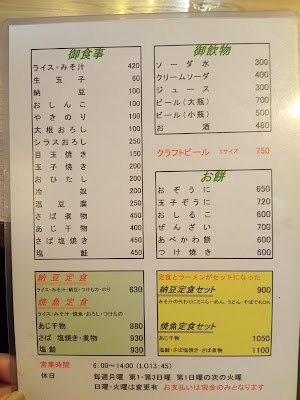 御食事
ライス・みそ汁 420
生玉子 60
納豆 100
おしんこ 100
やきのり 100
大根おろし 100
シラスおろし 250
目玉焼き 150
玉子焼き 250
おひたし 200
冷奴 200
温豆腐 250
さば煮物 450
あじ干物 400
さば塩焼き 450
塩鮭 450
御飲物
ソーダ水 300
クリームソーダ 400
ジュース 300
ビール(大瓶) 700
ビール(小瓶) 500
お酒 480
クラフトビール Sサイズ 750
お餅
おぞうに 650
玉子ぞうに 720
おしるこ 600
ぜんざい 700
あべかわ餅 600
つけ焼き 600
納豆定食
ライス・みそ汁・納豆・つけもの・のり 630
焼魚定食
ライス・みそ汁・焼魚・おろし・つけもの
あじ干物 880
さば 塩焼き・煮物 930
塩鮭 930
定食とラーメンがセットになった
納豆定食セット 900
みそ汁の代わりにミニらーめん、うどん・そばでもOK
焼魚定食セット
あじ干物 1050
塩鮭・さば塩焼き・さば煮物 1100
営業時間 6:00〜14:00(LO13:45)
休日 毎週月曜 第1・第3日曜 第1日曜の次の火曜
日曜・火曜は変更有 お支払いは現金のみとなります